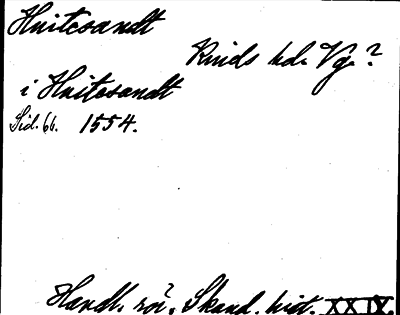 Huitesandt
Kinds hd. Vg.?
i Huitesandt
Sid. 66. 1554.
Handl. rör. Skand. hist. XXIX.